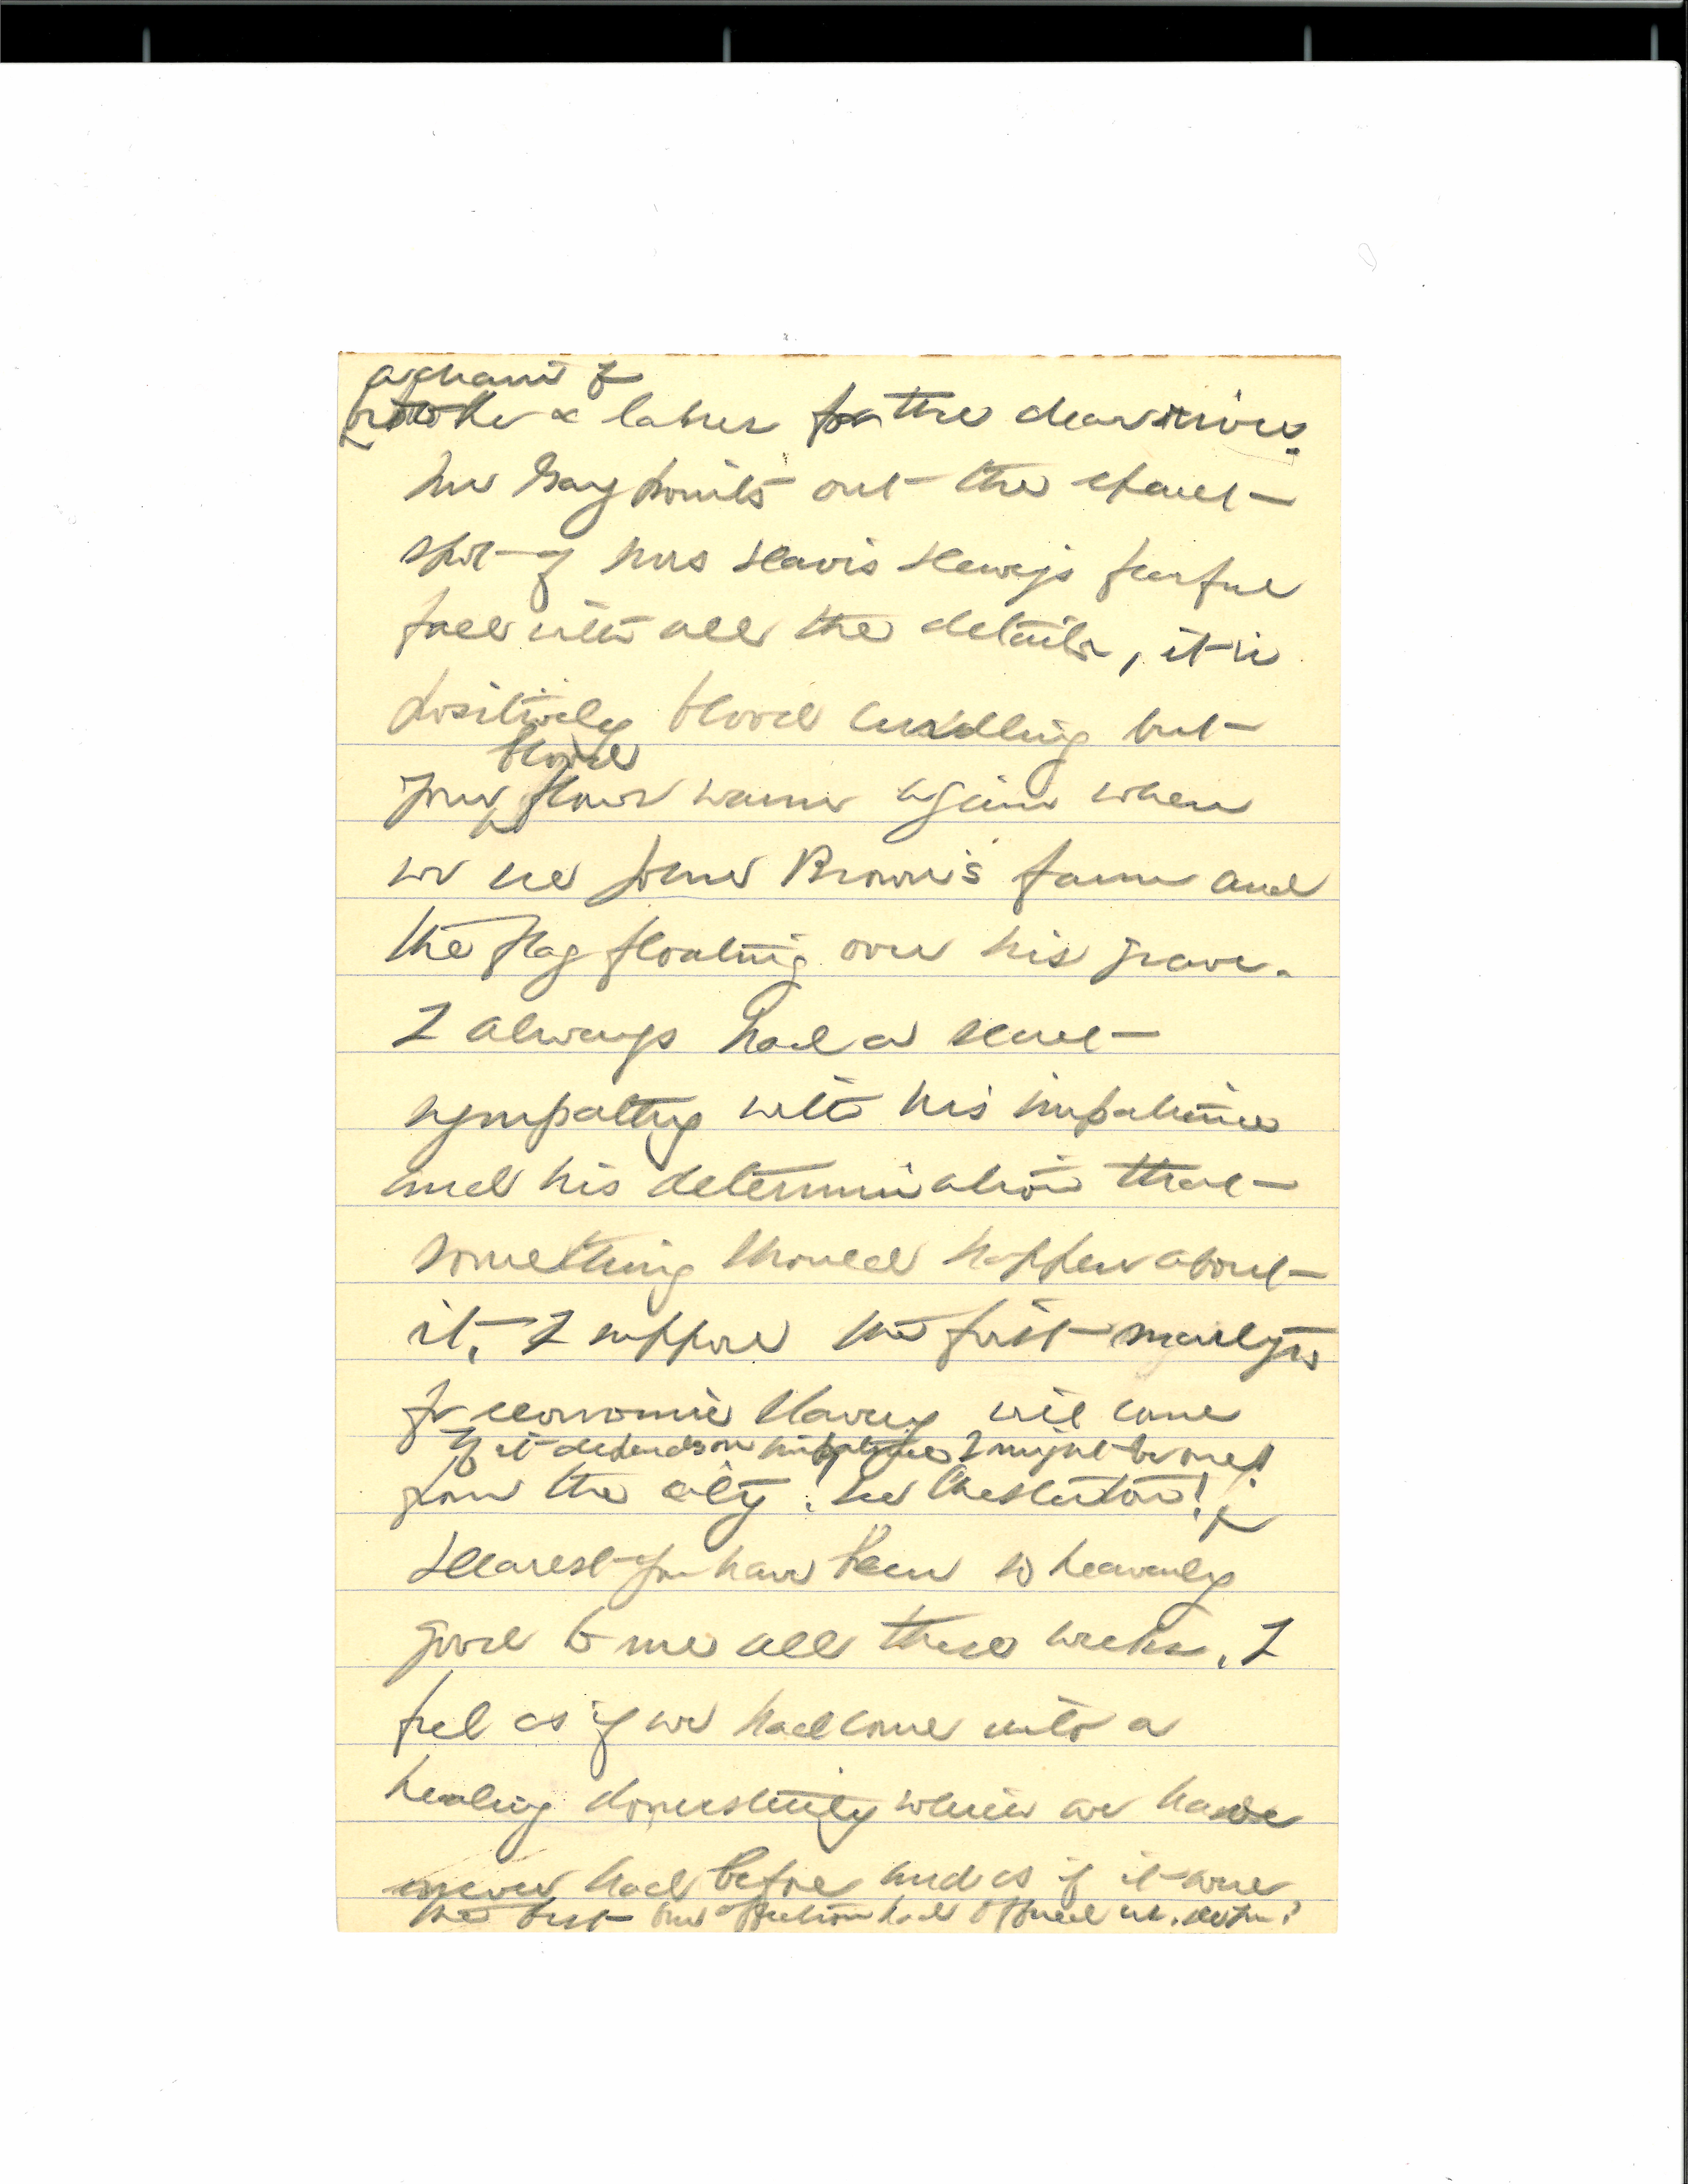 & lakes for the
Mr Gay points out the exact
spot of Mrs Davis Dewey's fearful
fall with all the details, it is
positively blood curdling but
your blood flows warm again when
we see John Brown's farm and
the flag floating over his grave.
I always had a secret
sympathy with his impatience
and his determination that
something should happen about
it. I suppose the first martyrs
for economic slavery will come
If it depends on impatience I might be one!
from the city! See Chesterton!
Dearest you have been so heavenly
good to me all these weeks. I
feel as if we had come into a
healing domesticity which we have
never had before and as if it were
the best our affection had offered us.